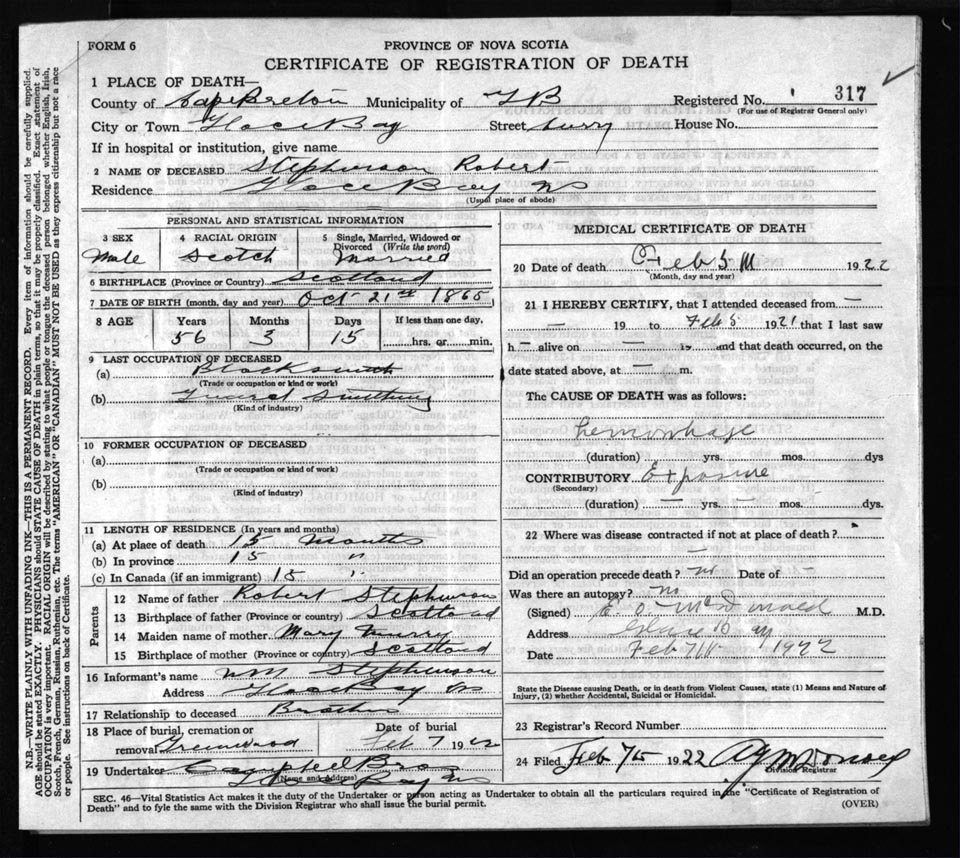 FORM 6
PROVINCE OF NOVA SCOTIA
CERTIFICATE OF REGISTRATION OF DEATH
1 PLACE OF DEATH—
County of Cape Breton Municipality of G B Registered No. 317
(For use of Registrar General only)
City or Town Glace Bay Street House No.
If in hospital or institution, give name
2 NAME OF DECEASED Stephenson Robert
Residence Glace Bay NS
(Usual place of abode)
PERSONAL AND STATISTICAL INFORMATION
3 SEX 4 RACIAL ORIGIN 5 Single, Married, Widowed or
Divorced (Write the word)
Male Scotch Married
6 BIRTHPLACE (Province or Country) Scotland
7 DATE OF BIRTH (month, day and year) Oct 21st 1865
8 AGE Years Months Days If less than one day,
56 3 15 hrs. or min.
9 LAST OCCUPATION OF DECEASED
(a) Blacksmith
(Trade or occupation or kind or work)
(b) Smithing
(Kind of industry)
10 FORMER OCCUPATION OF DECEASED
(a)
(Trade or occupation or kind of work)
(b)
(Kind of industry)
11 LENGTH OF RESIDENCE (In years and months)
(a) At place of death 15 Months
(b) In province 15 "
(c) In Canada (if an immigrant) 15 "
Parents
12 Name of father Robert Stephenson
13 Birthplace of father (Province or country) Scotland
14 Maiden name of mother Mary
15 Birthplace of mother (Province or country) Scotland
16 Informant's name Wm Stephenson
Address Glace Bay NS
17 Relationship to deceased Brother
18 Place of burial, cremation or Date of burial
removal Greenwood Feb 7 1922
19 Undertaker Campbell Bros
(Name and Address)
Glace Bay NS
MEDICAL CERTIFICATE OF DEATH
20 Date of death Feb 5th 1922
(Month, day and year)
21 I HEREBY CERTIFY, that I attended deceased from —
— 19 to Feb 5 1921 that I last saw
h — alive on — 19 and that death occurred, on the
date stated above, at — m.
The CAUSE OF DEATH was as follows:
hemorrhage
(duration) yrs. mos. dys
CONTRIBUTORY Exposure
(Secondary)
(duration) — yrs. — mos. — dys.
22 Where was disease contracted if not at place of death?
—
Did an operation precede death? no Date of —
Was there an autopsy? no
(Signed) E. O. McDonald M.D.
Address Glace Bay
Date Feb 7th 1922
State the Disease causing Death, or in death from Violent Causes, state (1) Means and Nature of
Injury, (2) whether Accidental, Suicidal or Homicidal.
23 Registrar's Record Number
24 Filed Feb 7th 1922 McDonald
Division Registrar
SEC. 46—Vital Statistics Act makes it the duty of the Undertaker or person acting as Undertaker to obtain all the particulars required in the "Certificate of Registration of
Death" and to fyle the same with the Division Registrar who shall issue the burial permit.
(OVER)
N.B.—WRITE PLAINLY WITH UNFADING INK—THIS IS A PERMANENT RECORD. Every item of information should be carefully supplied.
AGE should be stated EXACTLY. PHYSICIANS should STATE CAUSE OF DEATH in plain terms, so that it may be properly classified. Exact statement of
OCCUPATION is very important. RACIAL ORIGIN will be described by stating to what people or tongue the deceased person belonged, whether English, Irish,
Scotch, French, German, Russian, Ruthenian, etc. The terms "AMERICAN" OR "CANADIAN" MUST NOT BE USED as they express citizenship but not a race
or people. See instructions on back of Certificate.